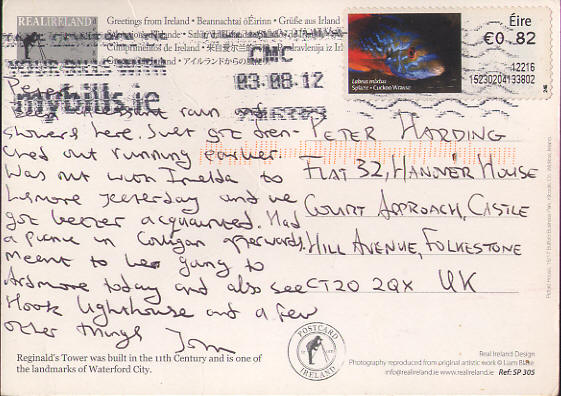 REAL IRELAND
Greetings from Ireland • Beannachtaí ó Éirinn • Grüße aus Irland
Cumprimentos de Ireland • 来自爱尔兰的
アイルランドからの
Éire
€0.82
12216
15230204133802
Labrus mixtus
Spláinc • Cuckoo Wrasse
CMC
03-08-12
mybills.ie
Peter
rain and
showers here. Just got dren-
ched out running earlier.
Was out with Imelda to
Lismore yesterday and we
got better acquainted. Had
a picnic in Colligan afterwards.
Meant to be going to
Ardmore today and also see
Hook Lighthouse and a few
other things Tom
PETER HARDING
FLAT 32, HANOVER HOUSE
COURT APPROACH, CASTLE
HILL AVENUE, FOLKESTONE
CT20 2QX UK
Reginald's Tower was built in the 11th Century and is one of
the landmarks of Waterford City.
POSTCARD
IRELAND
Real Ireland Design
Photography reproduced from original artistic work © Liam Blake
info@realireland.ie www.realireland.ie Ref: SP 305